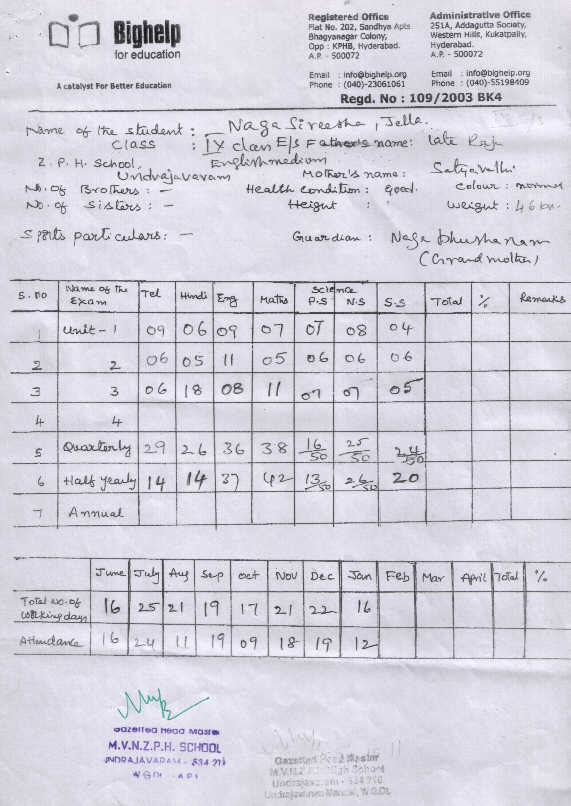 Bighelp
for education
A catalyst For Better Education
Registered Office
Flat No. 202, Sandhya Apts
Bhagyanagar Colony,
Opp : KPHB, Hyderabad.
A.P. - 500072
Email : info@bighelp.org
Phone : (040)-23061061
Administrative Office
251A, Addagutta Society,
Western Hills, Kukatpally,
Hyderabad.
A.P. - 500072
Email : info@bighelp.org
Phone : (040)-55198409
Regd. No : 109/2003 BK4
Name of the student : Naga Sireesha, Jella.
Class : IX class E/S Father's name: late Raju
Z. P. H. School, English medium Mother's name: Satyavathi
Undrajavaram
No. of Brothers : - Health condition : good. Colour : normal
No. of Sisters : - Height : Weight : 46
Sports particulars: - Guardian : Naga bhushanam
(Grand mother)
S. no Name of the Exam Tel Hindi Eng Maths Science P.S N.S S.S Total % Remarks
1 Unit - 1 09 06 09 07 07 08 04
2 2 06 05 11 05 06 06 06
3 3 06 18 08 11 07 07 05
4 4
5 Quarterly 29 26 36 38 16/50 25/50 24/50
6 Half yearly 14 14 37 42 13/50 26/50 20
7 Annual
June July Aug Sep Oct Nov Dec Jan Feb Mar April Total %
Total No. of working days 16 25 21 19 17 21 22 16
Attendance 16 24 11 19 09 18 19 12
Gazetted Head Master
M.V.N.Z.P.H. SCHOOL
UNDRAJAVARAM - 534 216
W.G.DT.
Gazetted Head Master
M.V.N.Z.P.H. High School
Undrajavaram - 534 216
Undrajavaram Mandal, W.G.Dt.